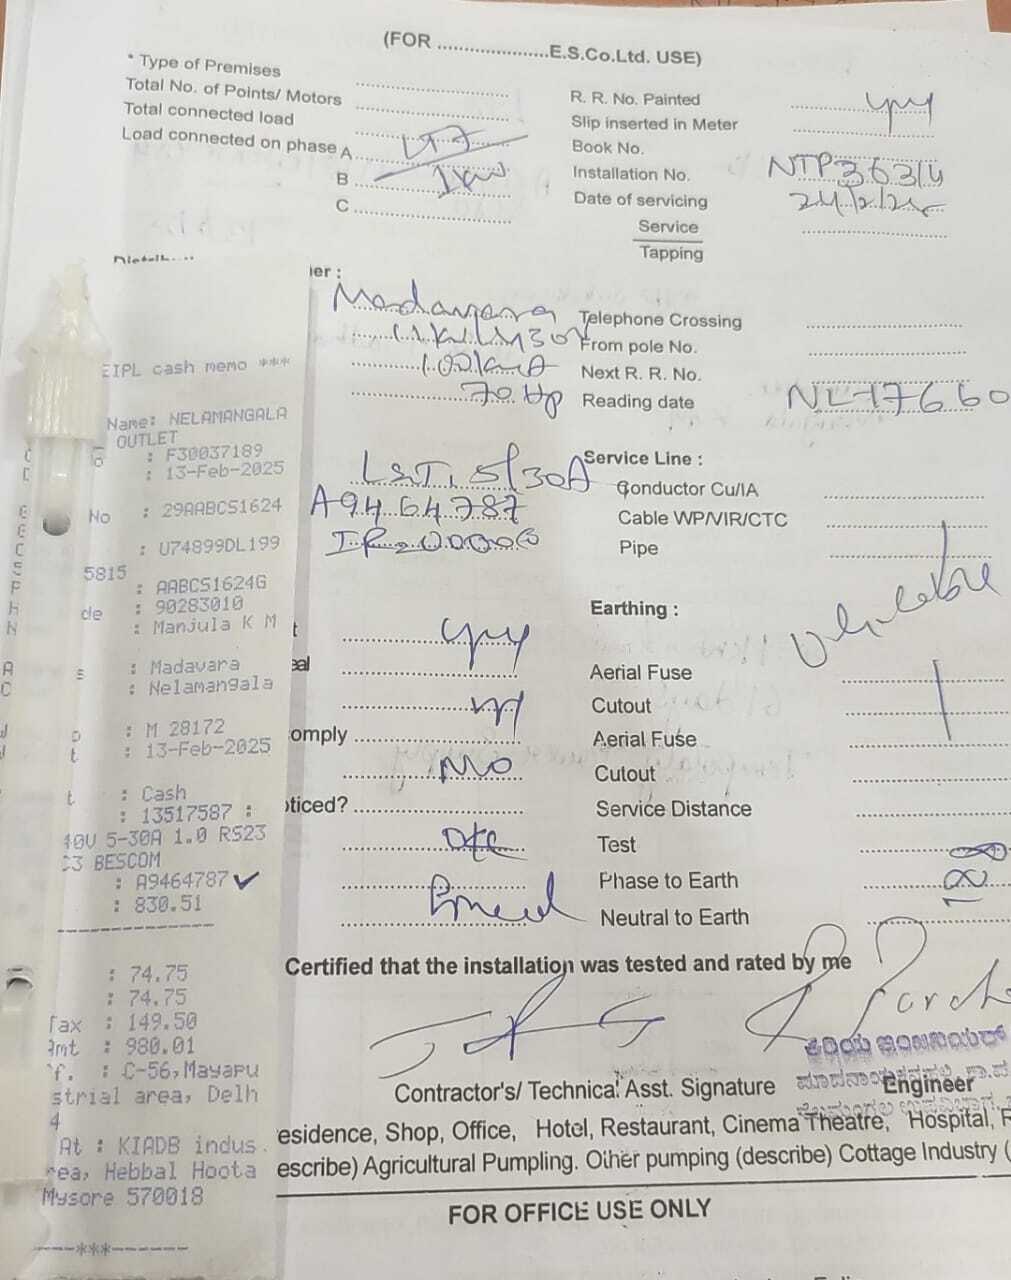 (FOR ......................E.S.Co.Ltd. USE)
* Type of Premises
Total No. of Points/ Motors
Total connected load
Load connected on phase A
B
C
R. R. No. Painted
Slip inserted in Meter
Book No.
Installation No. NTP36314
Date of servicing
Service
Tapping
ner :
Madavara
100kVA
70 Hp
Telephone Crossing
From pole No.
Next R. R. No.
Reading date NL17660
EIPL cash memo ***
Name: NELAMANGALA
OUTLET
: F30037189
: 13-Feb-2025
No : 29AABCS1624
: U74899DL199
5815
: AABCS1624G
de : 90283010
: Manjula K M
s : Madavara
: Nelamangala
o : M 28172
t : 13-Feb-2025
t : Cash
: 13517587 :
40V 5-30A 1.0 RS23
C3 BESCOM
: A9464787 ✓
: 830.51
: 74.75
: 74.75
Tax : 149.50
Amt : 980.01
f. : C-56,Mayapu
strial area, Delh
4
At : KIADB indus
rea, Hebbal Hoota
Mysore 570018
-----***------
L&T, 5/30A
A9464787
Service Line :
Conductor Cu/IA
Cable WP/VIR/CTC
Pipe
Earthing :
Aerial Fuse
Cutout
Aerial Fuse
Cutout
Service Distance
Test
Phase to Earth
Neutral to Earth
t
eal
omply
No
oticed?
Certified that the installation was tested and rated by me
Contractor's/ Technical Asst. Signature
ಕಿರಿಯ ಇಂಜಿನಿಯರ್
Engineer
esidence, Shop, Office, Hotel, Restaurant, Cinema Theatre, Hospital,
escribe) Agricultural Pumpling. Other pumping (describe) Cottage Industry (
FOR OFFICE USE ONLY